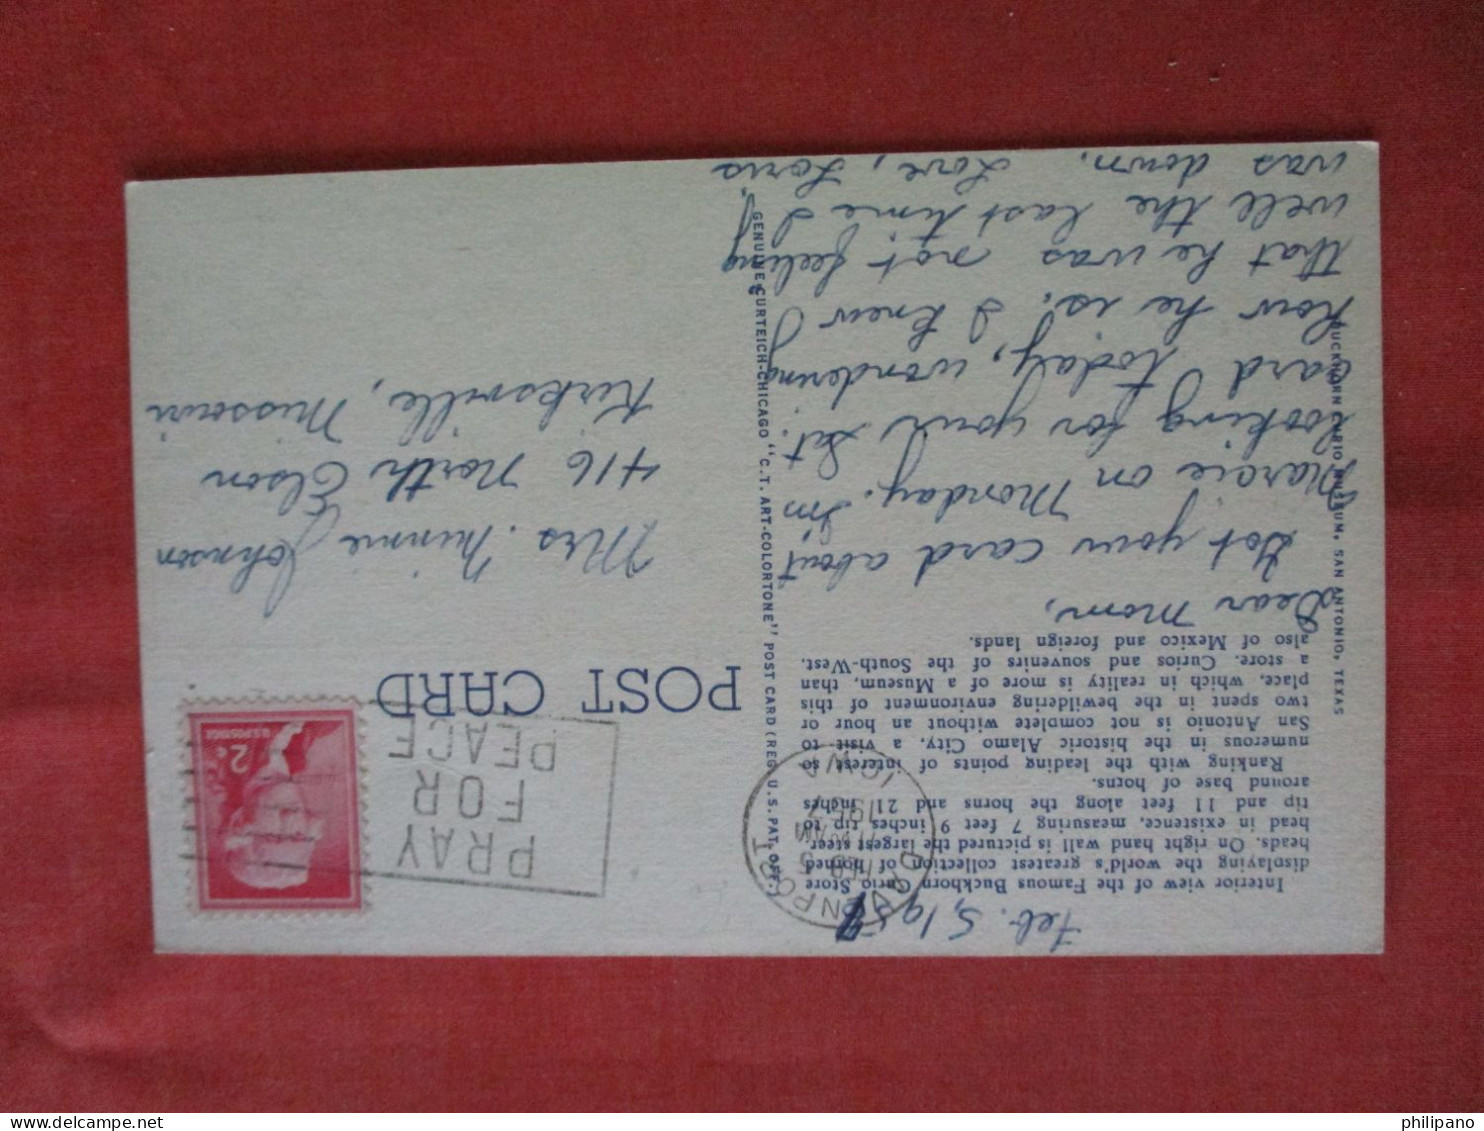 Feb. 5, 1957
Interior view of the Famous Buckhorn Curio Store
displaying the world's greatest collection of horned
heads. On right hand wall is pictured the largest steer
head in existence, measuring 7 feet 9 inches tip to
tip and 11 feet along the horns and 21 inches
around base of horns.
Ranking with the leading points of interest so
numerous in the historic Alamo City, a visit to
San Antonio is not complete without an hour or
two spent in the bewildering environment of this
place, which in reality is more of a Museum, than
a store. Curios and souvenirs of the South-West,
also of Mexico and foreign lands.
Dear Mom,
Got your card about
Marcie on Monday. I'm
looking for your let.
card today, wondering
how he is. I knew
that he was not feeling
well the last time I
was down. Love, Loris
BUCKHORN CURIO MUSEUM, SAN ANTONIO, TEXAS
GENUINE CURTEICH-CHICAGO "C.T. ART-COLORTONE" POST CARD (REG. U.S. PAT. OFF.)
DAVENPORT
FEB 5
AM
1957
IOWA
PRAY
FOR
PEACE
2¢
U.S. POSTAGE
POST CARD
Mrs. Minnie Johnson
416 North Elson
Kirksville, Missouri
philipano